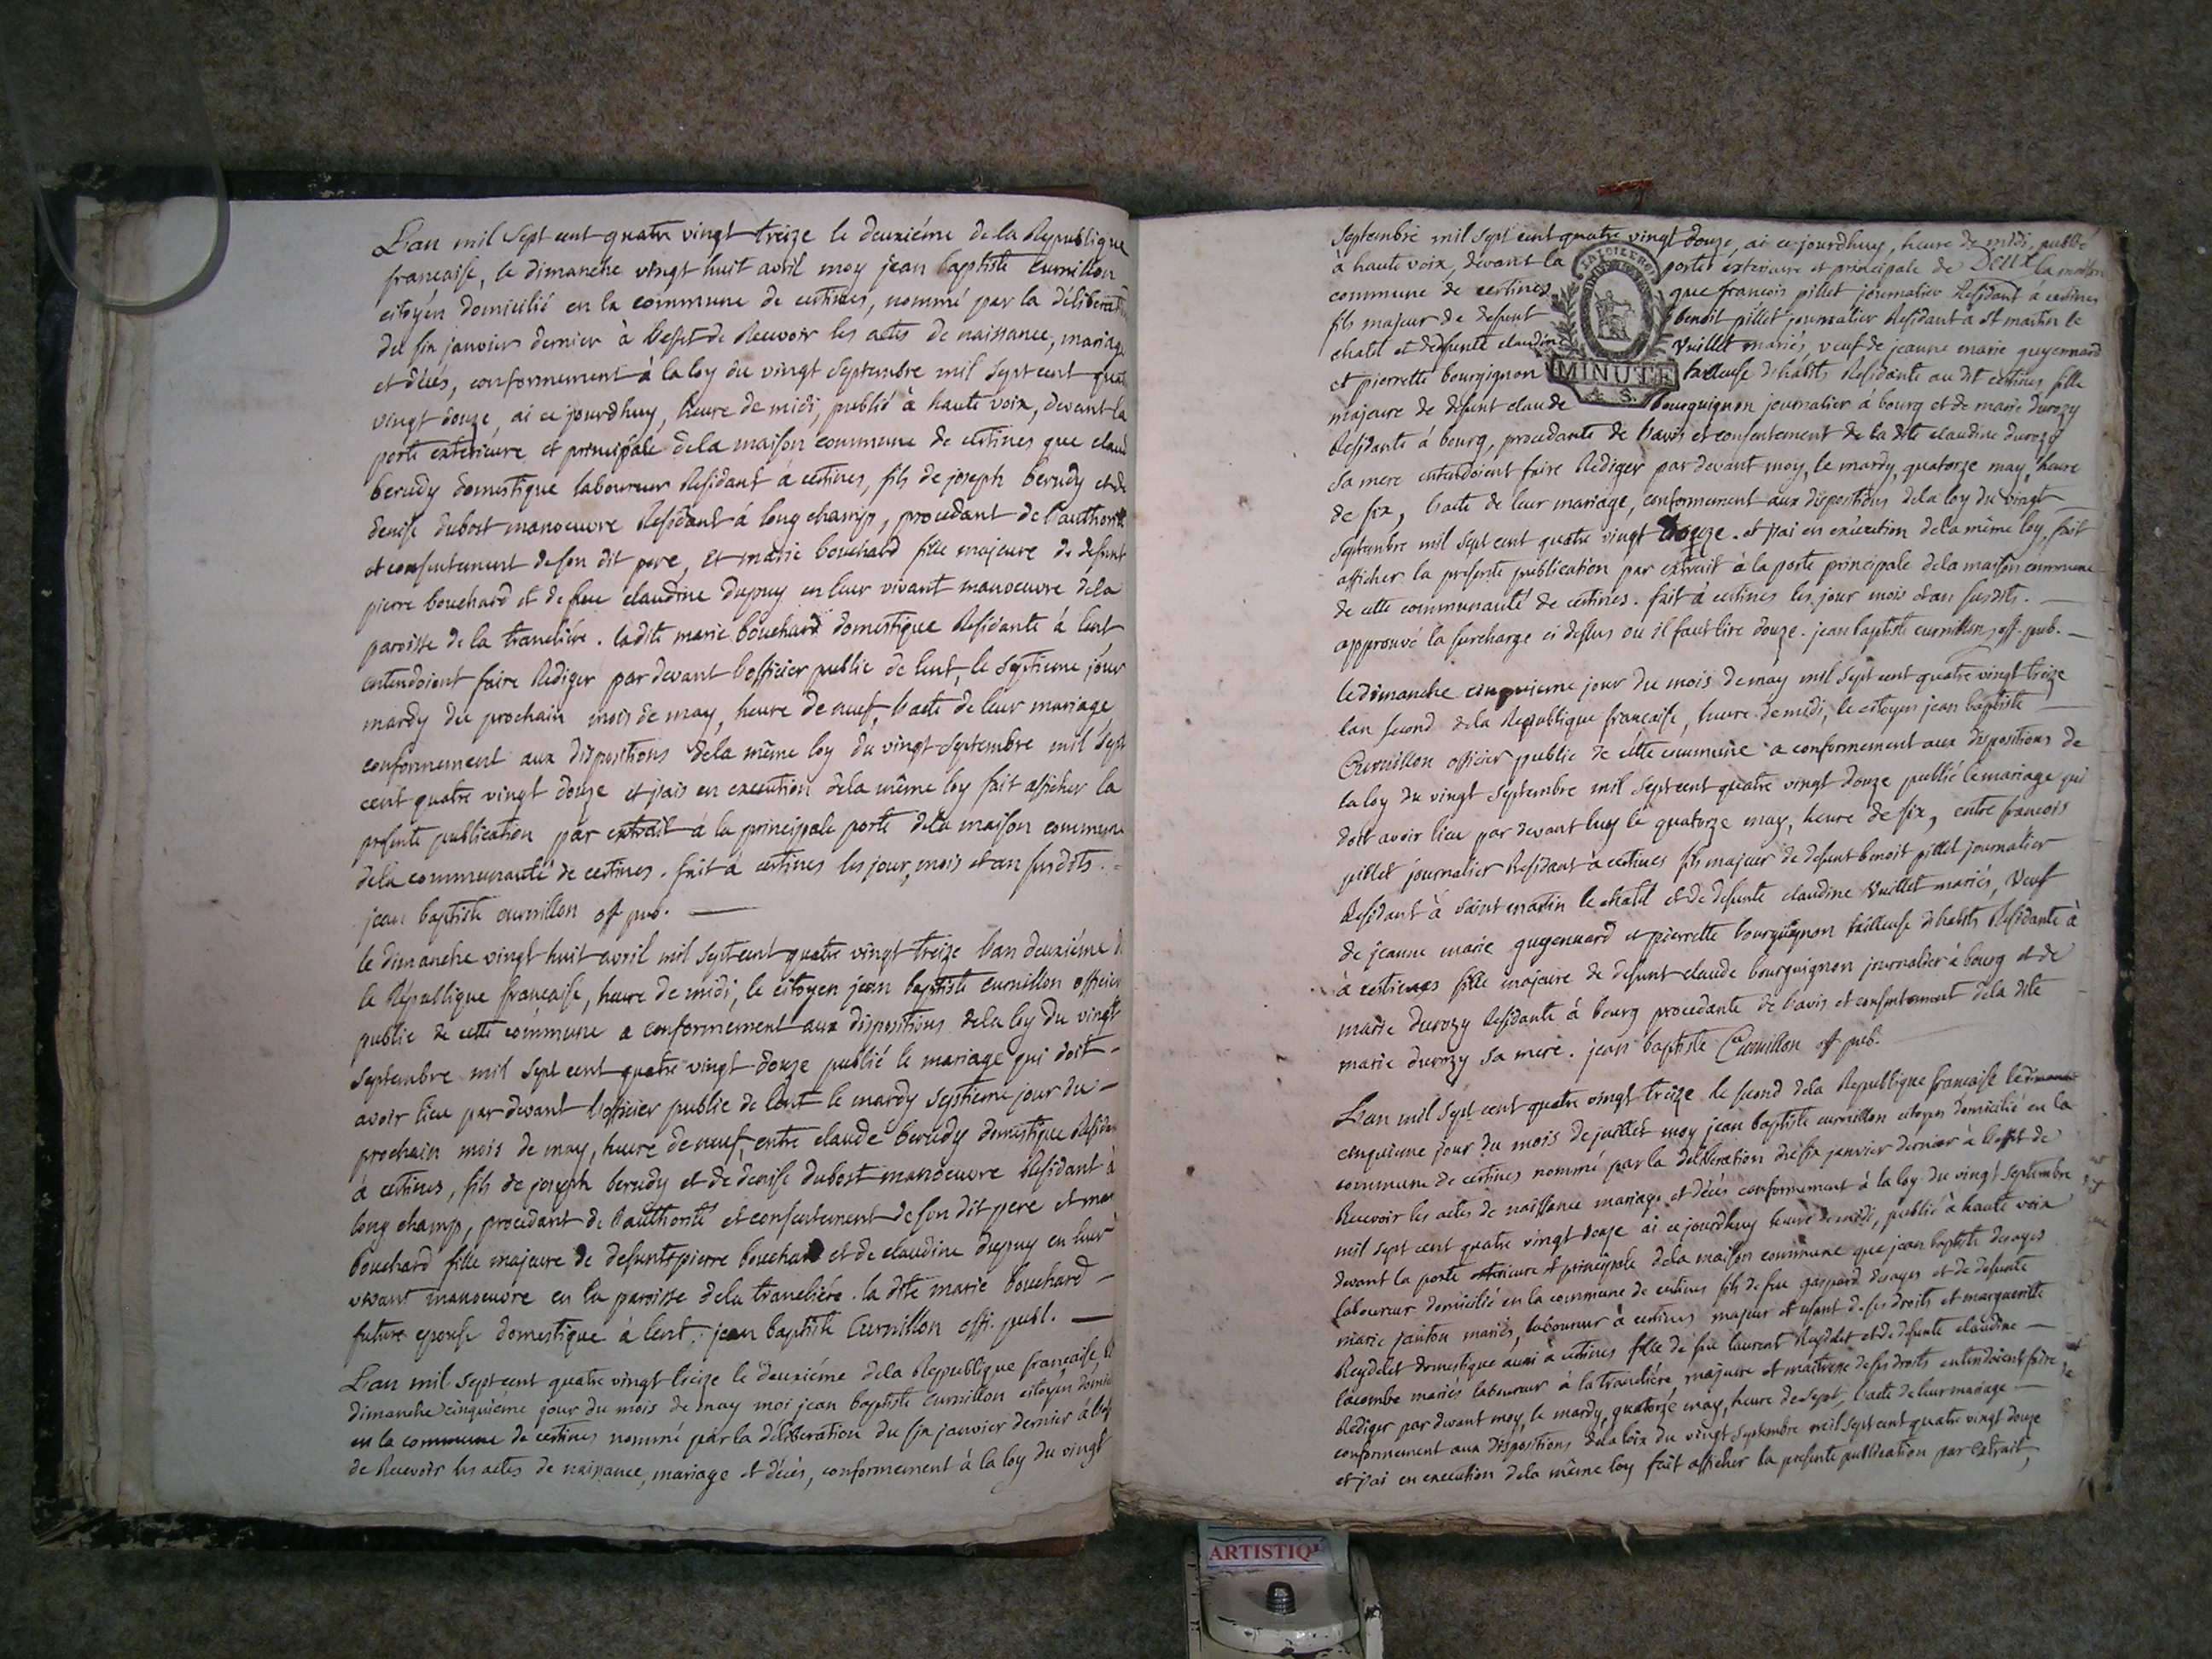 L'an mil Sept cent quatre vingt treize le deuxiéme de la Republique
francaise, le dimanche vingt huit avril moy jean baptiste curnillon
citoyen domicilié en la commune de certines, nommé par la déliberation
du six janvier dernier à l'effet de Recevoir les actes de naissance, mariage
et décés, conformement à la loy du vingt Septembre mil Sept cent quat
vingt douze, ai ce jourdhuy, heure de midi, publié à haute voix, devant la
porte exterieure et principale dela maison commune de certines que claud
berudy domestique laboureur Residant à certines, fils de joseph berudy et de
denise dubost manoeuvre Residant à long champ, procedant de l'authorité
et consentement de son dit pere, et marie bouchard fille majeure de defunt
pierre bouchard et de feue claudine dupuy en leur vivant manoeuvre dela
paroisse de la tranclière. ladite marie bouchard domestique Residante à lent
entendoient faire Rediger par devant l'officier public de lent, le septieme jour
mardy du prochain mois de may, heure de neuf, l'acte de leur mariage
conformement aux dispositions dela même loy du vingt Septembre mil sept
cent quatre vingt douze et j'ais en execution dela même loy fait afficher la
presente publication par extrait à la principale porte dela maison commune
dela communauté de certines. fait à certines les jour, mois et an susdits.
jean baptiste curnillon off pub.
le dimanche vingt huit avril mil sept cent quatre vingt treize l'an deuxiéme d
la République francaise, heure de midi, le citoyen jean baptiste curnillon officier
public de cette commune a conformement aux dispositions dela loy du vingt
Septembre mil Sept cent quatre vingt douze publié le mariage qui doit
avoir lieu par devant l'officier public de lent le mardy septieme jour du
prochain mois de may, heure de neuf, entre claude berudy domestique Residan
à certines, fils de joseph berudy et de denise dubost manoeuvre Residant à
long champ, procedant de l'authorité et consentement de son dit pere et mar
bouchard fille majeure de defunts pierre bouchard et de claudine dupuy en leur
vivant manoeuvre en la paroisse dela tranclière. la dite marie bouchard
future epouse domestique à lent. jean baptiste Curnillon offi. publ.
L'an mil Sept cent quatre vingt treize le deuxiéme dela Republique française, le
dimanche cinquiéme jour du mois de may moi jean baptiste Curnillon citoyen domici
en la commune de certines nommé par la déliberation du six janvier dernier à l'eff
de Recevoir les actes de naissance, mariage et décès, conformement à la loy du vingt
septembre mil sept cent quatre vingt douze, ai ce jourdhuy, heure de midi, publié
à haute voix, devant la porte exterieure et principale de la maison
commune de certines que francois pillet journalier Residant à certines
fils majeur de defunt benoit pillet journalier Residant à st martin le
chatel et de defunte claudine Vuillet mariés, veuf de jeanne marie guyennard
et pierrette bourgignon tailleuse d'habits Residante au dit certines fille
majeure de defunt claude bourguignon journalier à bourg et de marie durozy
Residante à bourg, procedante de l'avis et consentement de la dite claudine durozy
sa mere entendoient faire Rediger par devant moy, le mardy, quatorze may, heure
de six, l'acte de leur mariage, conformement aux dispositions dela loy du vingt
septembre mil sept cent quatre vingt douze. et j'ai en execution dela même loy, fait
afficher la presente publication par extrait à la porte principale dela maison commune
de cette communauté de certines. fait à certines les jour mois et an susdits.
approuvé la surcharge ci dessus ou il faut lire douze. jean baptiste curnillon off. pub.
le dimanche cinquieme jour du mois de may mil sept cent quatre vingt treize
l'an second dela Republique francaise, heure de midi, le citoyen jean baptiste
Curnillon officier public de cette commune a conformement aux dispositions de
la loy du vingt Septembre mil sept cent quatre vingt douze publié le mariage qui
doit avoir lieu par devant luy le quatorze may, heure de six, entre francois
pillet journalier Residant à certines fils majeur de defunt benoit pillet journalier
Residant à saint martin le chatel et de defunte claudine Vuillet mariés, Veuf
de jeanne marie guyennard et pierrette bourguignon tailleuse d'habits Residante à
à certines fille majeure de defunt claude bourguignon journalier à bourg et de
marie durozy Residante à bourg procedante de l'avis et consentement dela dite
marie durozy sa mere. jean baptiste Curnillon off pub.
L'an mil sept cent quatre vingt treize le second dela Republique francaise le dimanche
cinquieme jour du mois de juillet moy jean baptiste curnillon citoyen domicilié en la
commune de certines nommé par la déliberation du six janvier dernier à l'effet de
Recevoir les actes de naissance mariage et décès conformement à la loy du vingt septembre
mil sept cent quatre vingt douze ai ce jourdhuy heure de midi, publié à haute voix
devant la porte exterieure et principale dela maison commune que jean baptiste desayes
laboureur domicilié en la commune de certines fils de feu gaspard desayes et de defunte
marie janton mariés, laboureur à certines majeur et usant de ses droits et marguerite
Reydelet domestique aussi à certines fille de feu laurent Reydelet et de defunte claudine
lacombre mariés laboureur à la tranclière majeure et maitresse de ses droits entendoient faire
Rediger par devant moy, le mardy, quatorze may, heure de sept, l'acte de leur mariage
conformement aux dispositions dela loix du vingt septembre mil sept cent quatre vingt douze
et j'ai en execution dela même loy fait afficher la presente publication par extrait,
MINUTE
4 S.
DEUX
ARTISTIQ